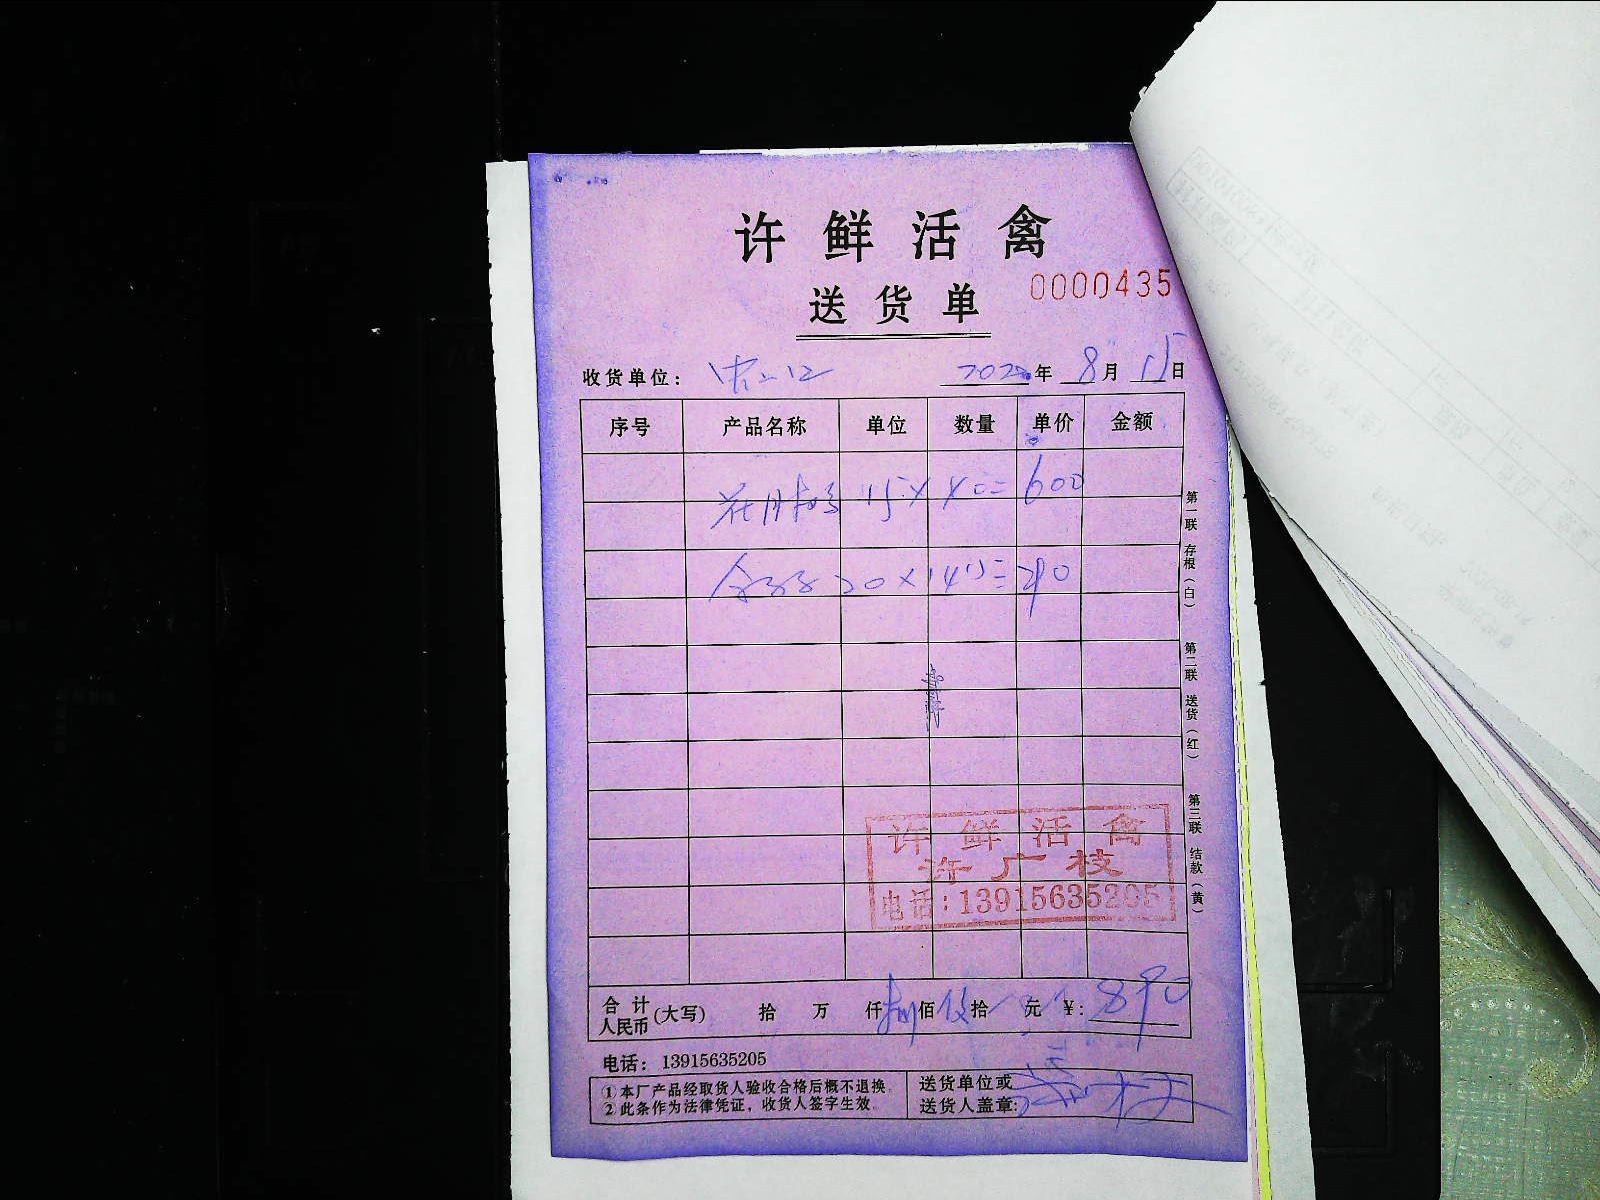 许鲜活禽
送货单
0000435
收货单位： 202 年 8月 15日
序号 产品名称 单位 数量 单价 金额
15×40=600
20×145=290
第一联 存根（白）
第二联 送货（红）
第三联 结款（黄）
许鲜活禽
许广枝
电话：13915635205
合计人民币（大写） 拾 万 仟捌佰 拾 元 ¥：890
电话：13915635205
①本厂产品经取货人验收合格后概不退换。
2此条作为法律凭证，收货人签字生效。
送货单位或
送货人盖章：